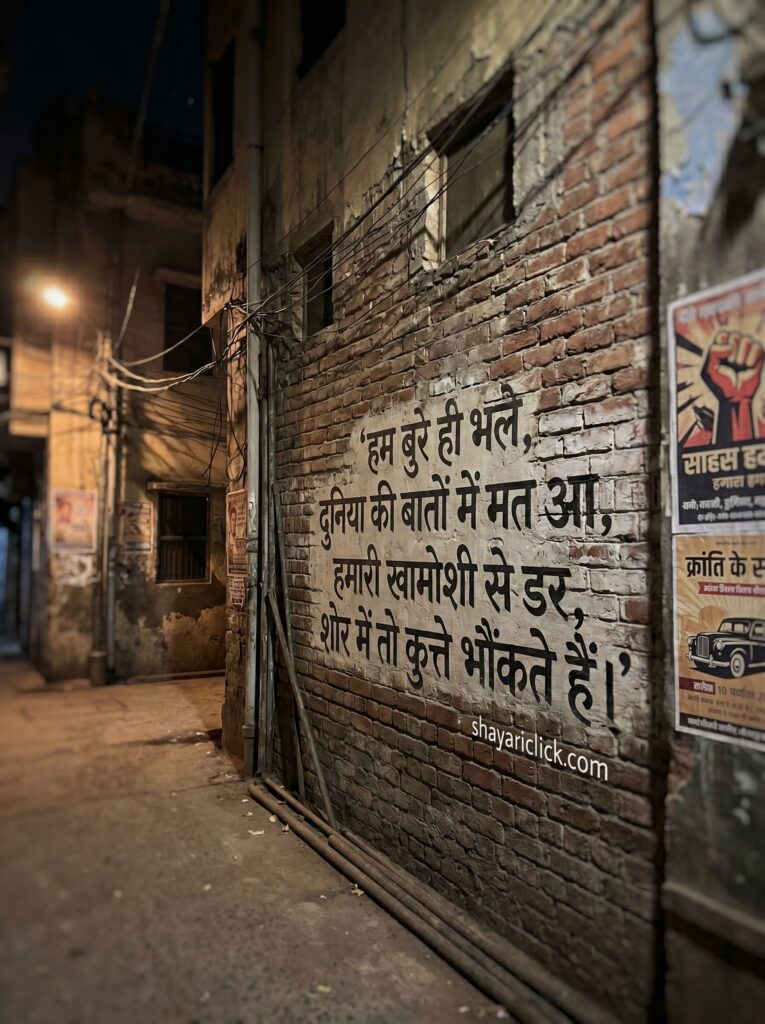 ‘हम बुरे ही भले,
दुनिया की बातों में मत आ,
हमारी खामोशी से डर,
शोर में तो कुत्ते भौंकते हैं।’
shayariclick.com
साहस
हमारा
क्रांति के
10